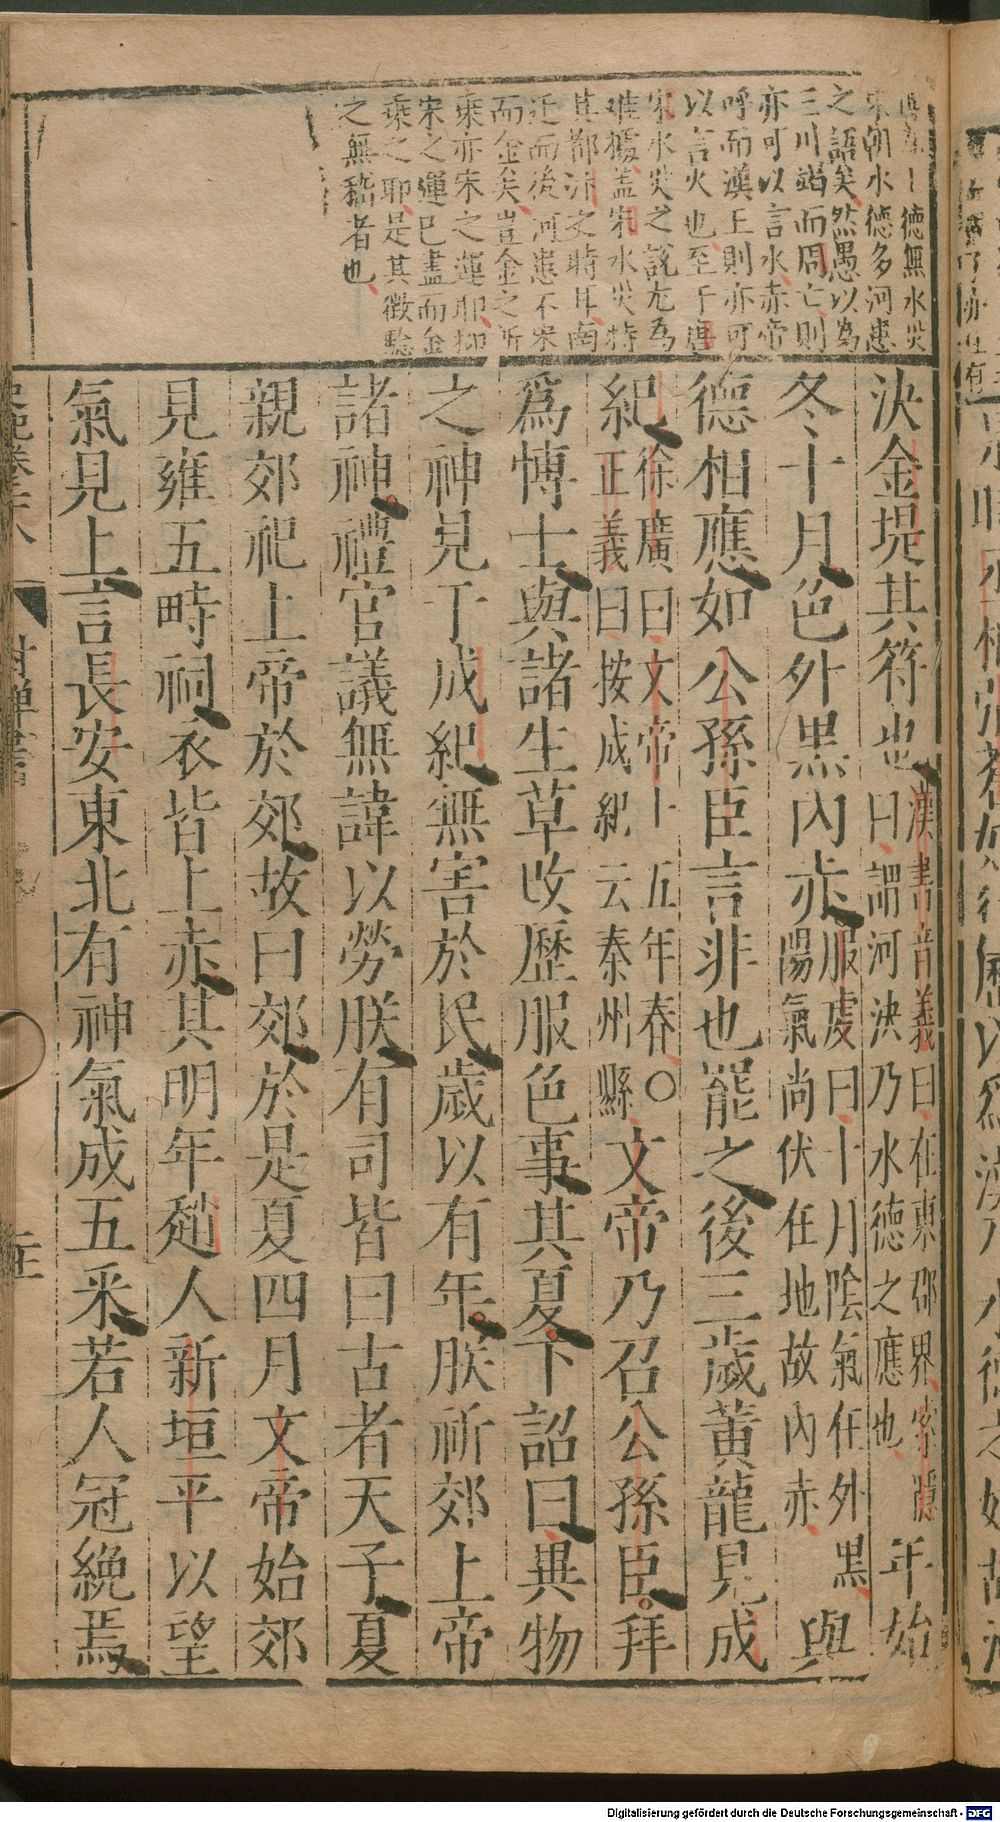 德無水災
宋朝水德多河患
之語矣然愚以為
三川竭而周亡則
亦可以言水赤帝
呼而漢王則亦可
以言火也至于唐
宋水災之說尤為
難據蓋宋水災特
其都汴之時耳南
迁而後河患不宋
而金矣豈金之所
乘亦宋之運耶抑
宋之運已盡而金
乘之耶是其徵驗
之無稽者也
決金堤其符也漢書音義曰在東郡界索隱
曰謂河決乃水德之應也年始
冬十月色外黑內赤服虔曰十月陰氣在外黑
陽氣尚伏在地故內赤與
德相應如公孫臣言非也罷之後三歲黃龍見成
紀徐廣曰文帝十五年春〇
正義曰按成紀云秦州縣文帝乃召公孫臣拜
爲博士與諸生草改歷服色事其夏下詔曰異物
之神見于成紀無害於民歲以有年朕祈郊上帝
諸神禮官議無諱以勞朕有司皆曰古者天子夏
親郊祀上帝於郊故曰郊於是夏四月文帝始郊
見雍五畤祠衣皆上赤其明年趙人新垣平以望
氣見上言長安東北有神氣成五采若人冠絻焉
史記卷二十八 封禪書
Digitalisierung gefördert durch die Deutsche Forschungsgemeinschaft - DFG